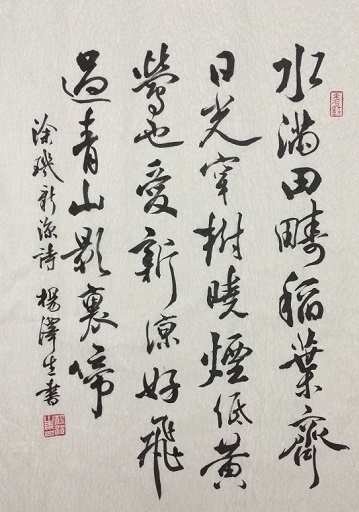 水滿田疇稻葉齊
日光穿樹曉煙低黃
鶯也愛新涼好飛
過青山影裏啼
涂璣新涼詩 楊澤生書